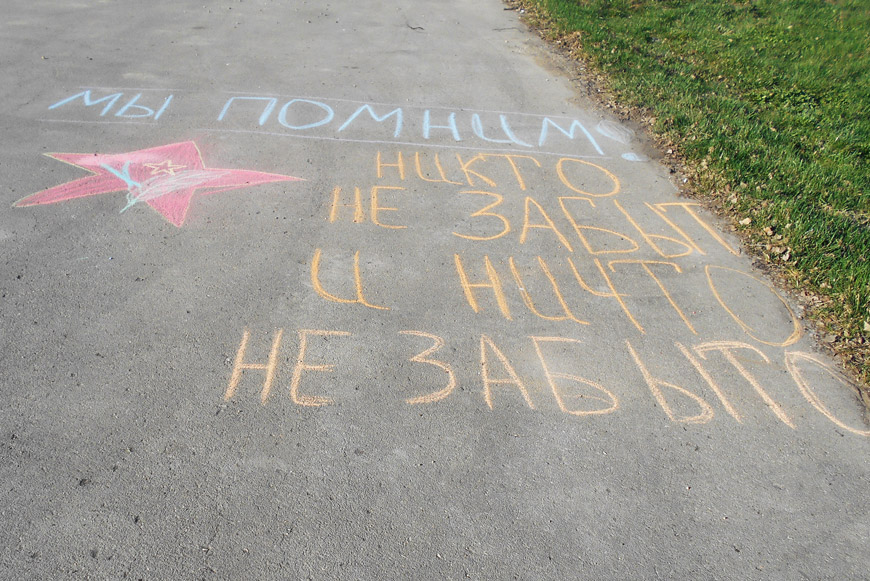 МЫ ПОМНИМ!
НИКТО
НЕ ЗАБЫТ
И НИЧТО
НЕ ЗАБЫТО